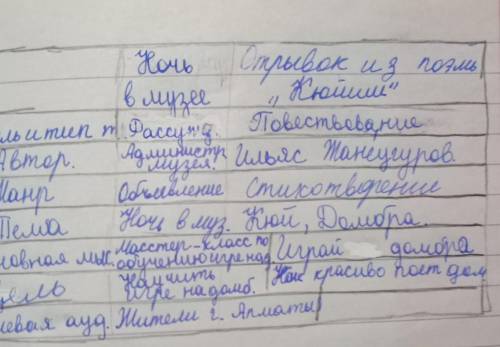 Ночь Отрывок из поэмы
в музее „Кюйши“
ль и тип т. Рассужд. Повествование
Автор. Администр. музея. Ильяс Жансугуров
Жанр Объявление Стихотворение
Тема Ночь в муз. Кюй, Домбра.
новная мыс. Масстер-класс по обучению игре на д Играй домбра
Цель Научить игре на домб. Как красиво поет дом
левая ауд. Жители г. Алматы